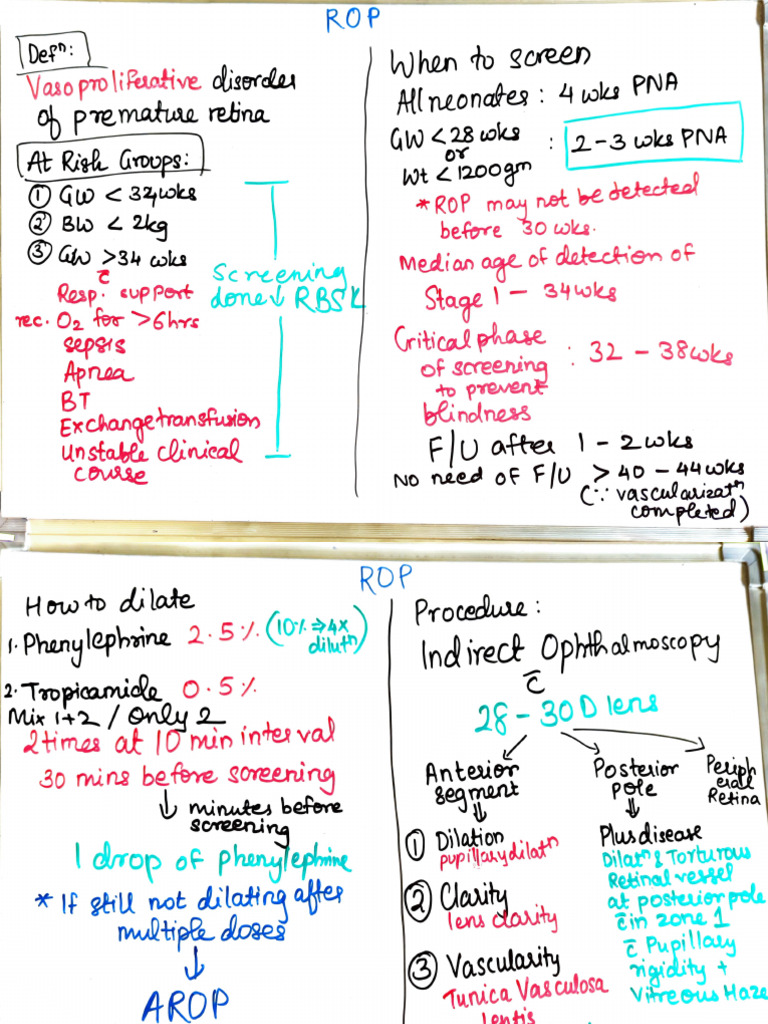 ROP
Defⁿ:
Vasoproliferative disorder
of premature retina
At Risk Groups:
① GW < 32wks
② BW < 2kg
③ GW >34 wks
c̄
Resp. support
rec. O₂ for >6hrs
sepsis
Apnea
BT
Exchange transfusion
Unstable clinical
course
Screening
done↓ RBSK
When to screen
All neonates : 4 wks PNA
GW < 28 wks
or
Wt < 1200gm
: 2 - 3 wks PNA
* ROP may not be detected
before 30 wks.
Median age of detection of
Stage 1 - 34wks
Critical phase
of screening
to prevent
blindness
: 32 - 38wks
F/U after 1 - 2 wks
No need of F/U > 40 - 44wks
(∵ vascularizatⁿ
completed)
ROP
How to dilate
1. Phenylephrine 2.5% (10% ⇒ 4x
dilutⁿ)
2. Tropicamide 0.5%
Mix 1+2 / Only 2
2 times at 10 min interval
30 mins before screening
↓ minutes before
screening
1 drop of phenylephrine
* If still not dilating after
multiple doses
↓
AROP
Procedure :
Indirect Ophthalmoscopy
c̄
28 - 30 D lens
Anterior
segment
① Dilation
pupillary dilatⁿ
② Clarity
lens clarity
③ Vascularity
Tunica Vasculosa
lentis
Posterior
pole
Plus disease
Dilatⁿ & Torturous
Retinal vessel
at posterior pole
c̄ in zone 1
c̄ Pupillary
rigidity +
Vitreous Haze
Periph
eral
Retina